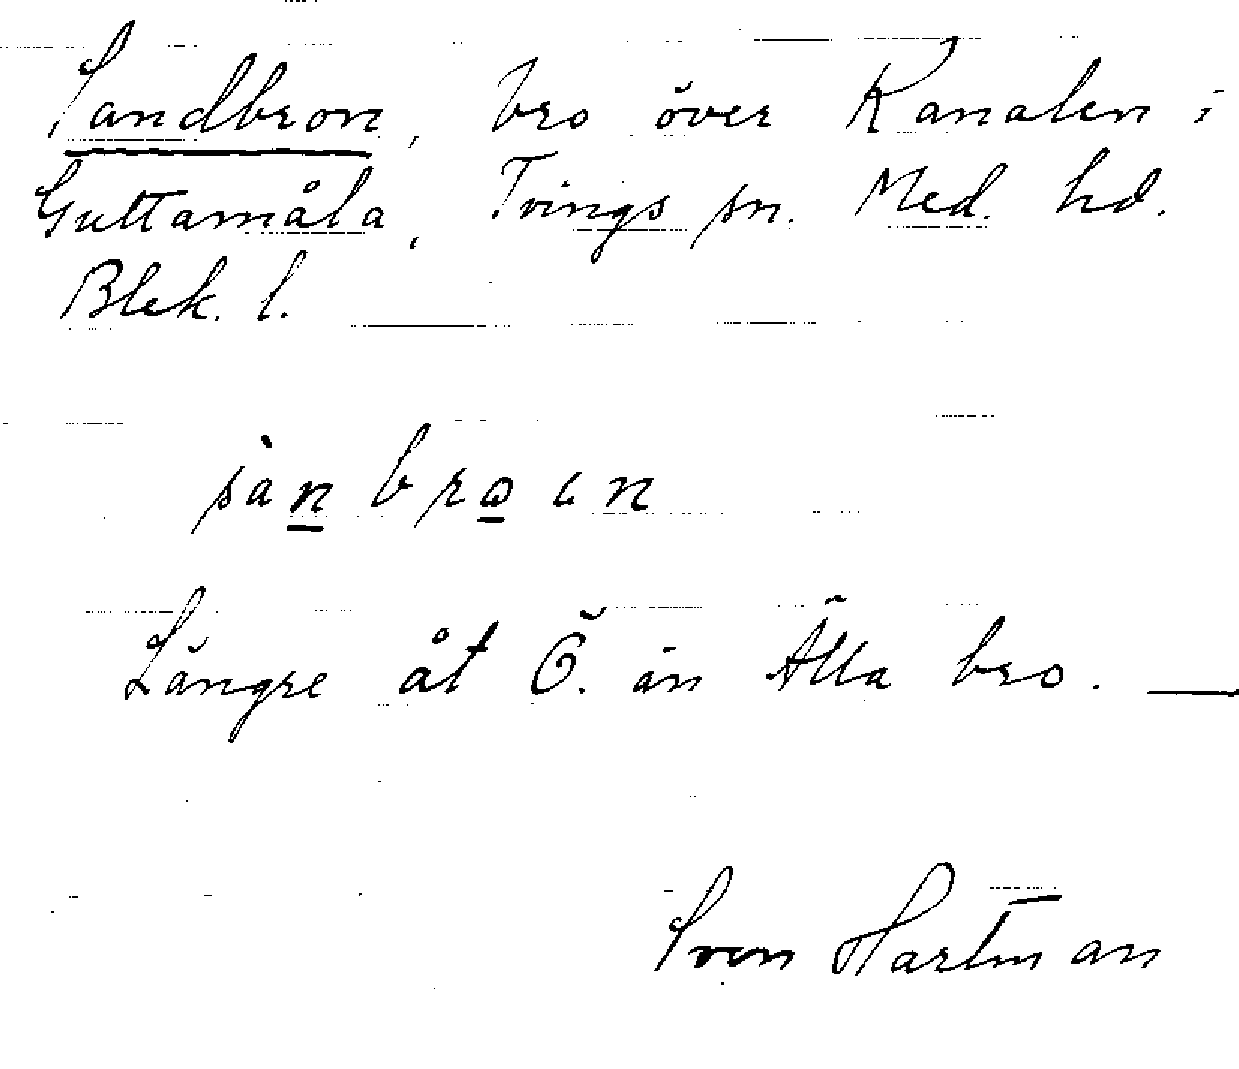 Sandbron, bro över Kanalen i
Guttamåla, Tvings sn. Med. hd.
Blek. l.
sàn broɩn
Längre åt Ö. än Älla bro. —
Sven Hartman